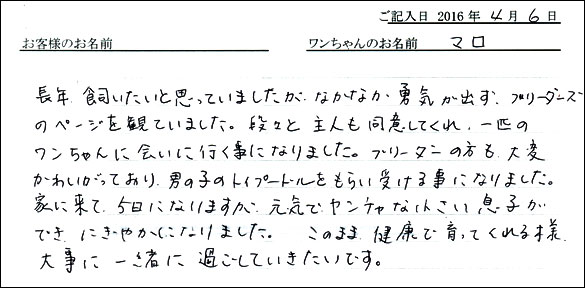 ご記入日 2016年 4月 6日
お客様のお名前 ワンちゃんのお名前 マロ
長年 飼いたいと思っていましたが、なかなか 勇気が出ず、ブリーダーズ
のページを観ていました。段々と 主人も 同意してくれ、一匹の
ワンちゃんに 会いに行く事になりました。ブリーダーの方も、大変
かわいがっており、男の子のトイプードルをもらい受ける事になりました。
家に来て、5日になりますが、元気で ヤンチャな小さい 息子が
でき、にぎやかになりました。 このまま 健康で 育ってくれる様、
大事に 一緒に 過ごしていきたいです。